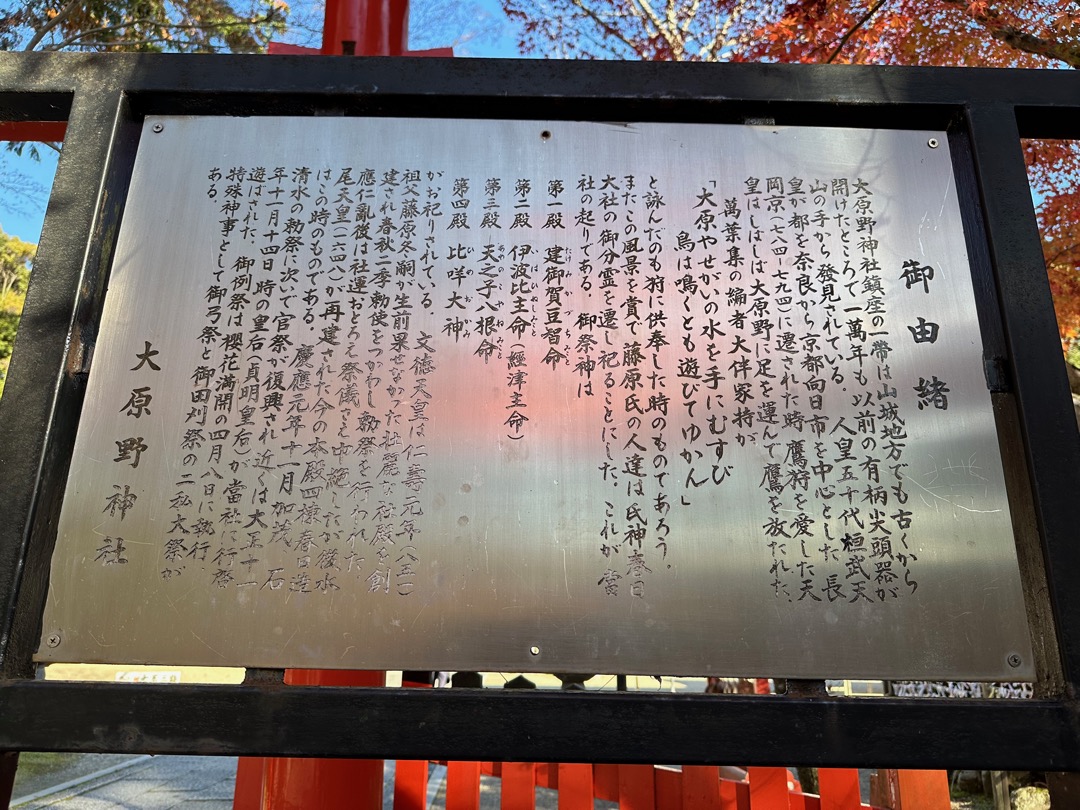 御由緒
大原野神社鎮座の一帯は山城地方でも古くから
開けたところで一萬年も以前の有柄尖頭器が
山の手から發見されている。人皇五十代桓武天
皇が都を奈良から京都向日市を中心とした長
岡京(七八四–七九四)に遷された時、鷹狩を愛した天
皇はしばしば大原野に足を運んで鷹を放たれた、
萬葉集の編者大伴家持が
「大原やせがいの水を手にむすび
鳥は鳴くとも遊びてゆかん」
と詠んだのも狩に供奉した時のものであろう。
またこの風景を賞で藤原氏の人達は氏神春日
大社の御分霊を遷し祀ることにした、これが當
社の起りである。御祭神は
第一殿 建御賀豆智命
たけみかづちのみこと
第二殿 伊波比主命(經津主命)
第三殿 天之子八根命
第四殿 比咩大神
ひめおおかみ
がお祀りされている。文德天皇は仁壽元年(八五一)
祖父藤原冬嗣が生前果せなかった壮麗な社殿を創
建され春秋二季勅使をつかわし勅祭を行われた、
應仁亂後は社運おとろえ祭儀さえ中絶したが後水
尾天皇(一六四八)が再建された今の本殿四棟春日造
はこの時のものである。慶應元年十一月加茂、石
清水の勅祭に次いで官祭が復興され近くは大正十一
年十一月十四日時の皇后(貞明皇后)が當社に行啓
遊ばされた、御例祭は櫻花満開の四月八日に執行
特殊神事として御弓祭と御田刈祭の二私大祭が
ある。
大原野神社